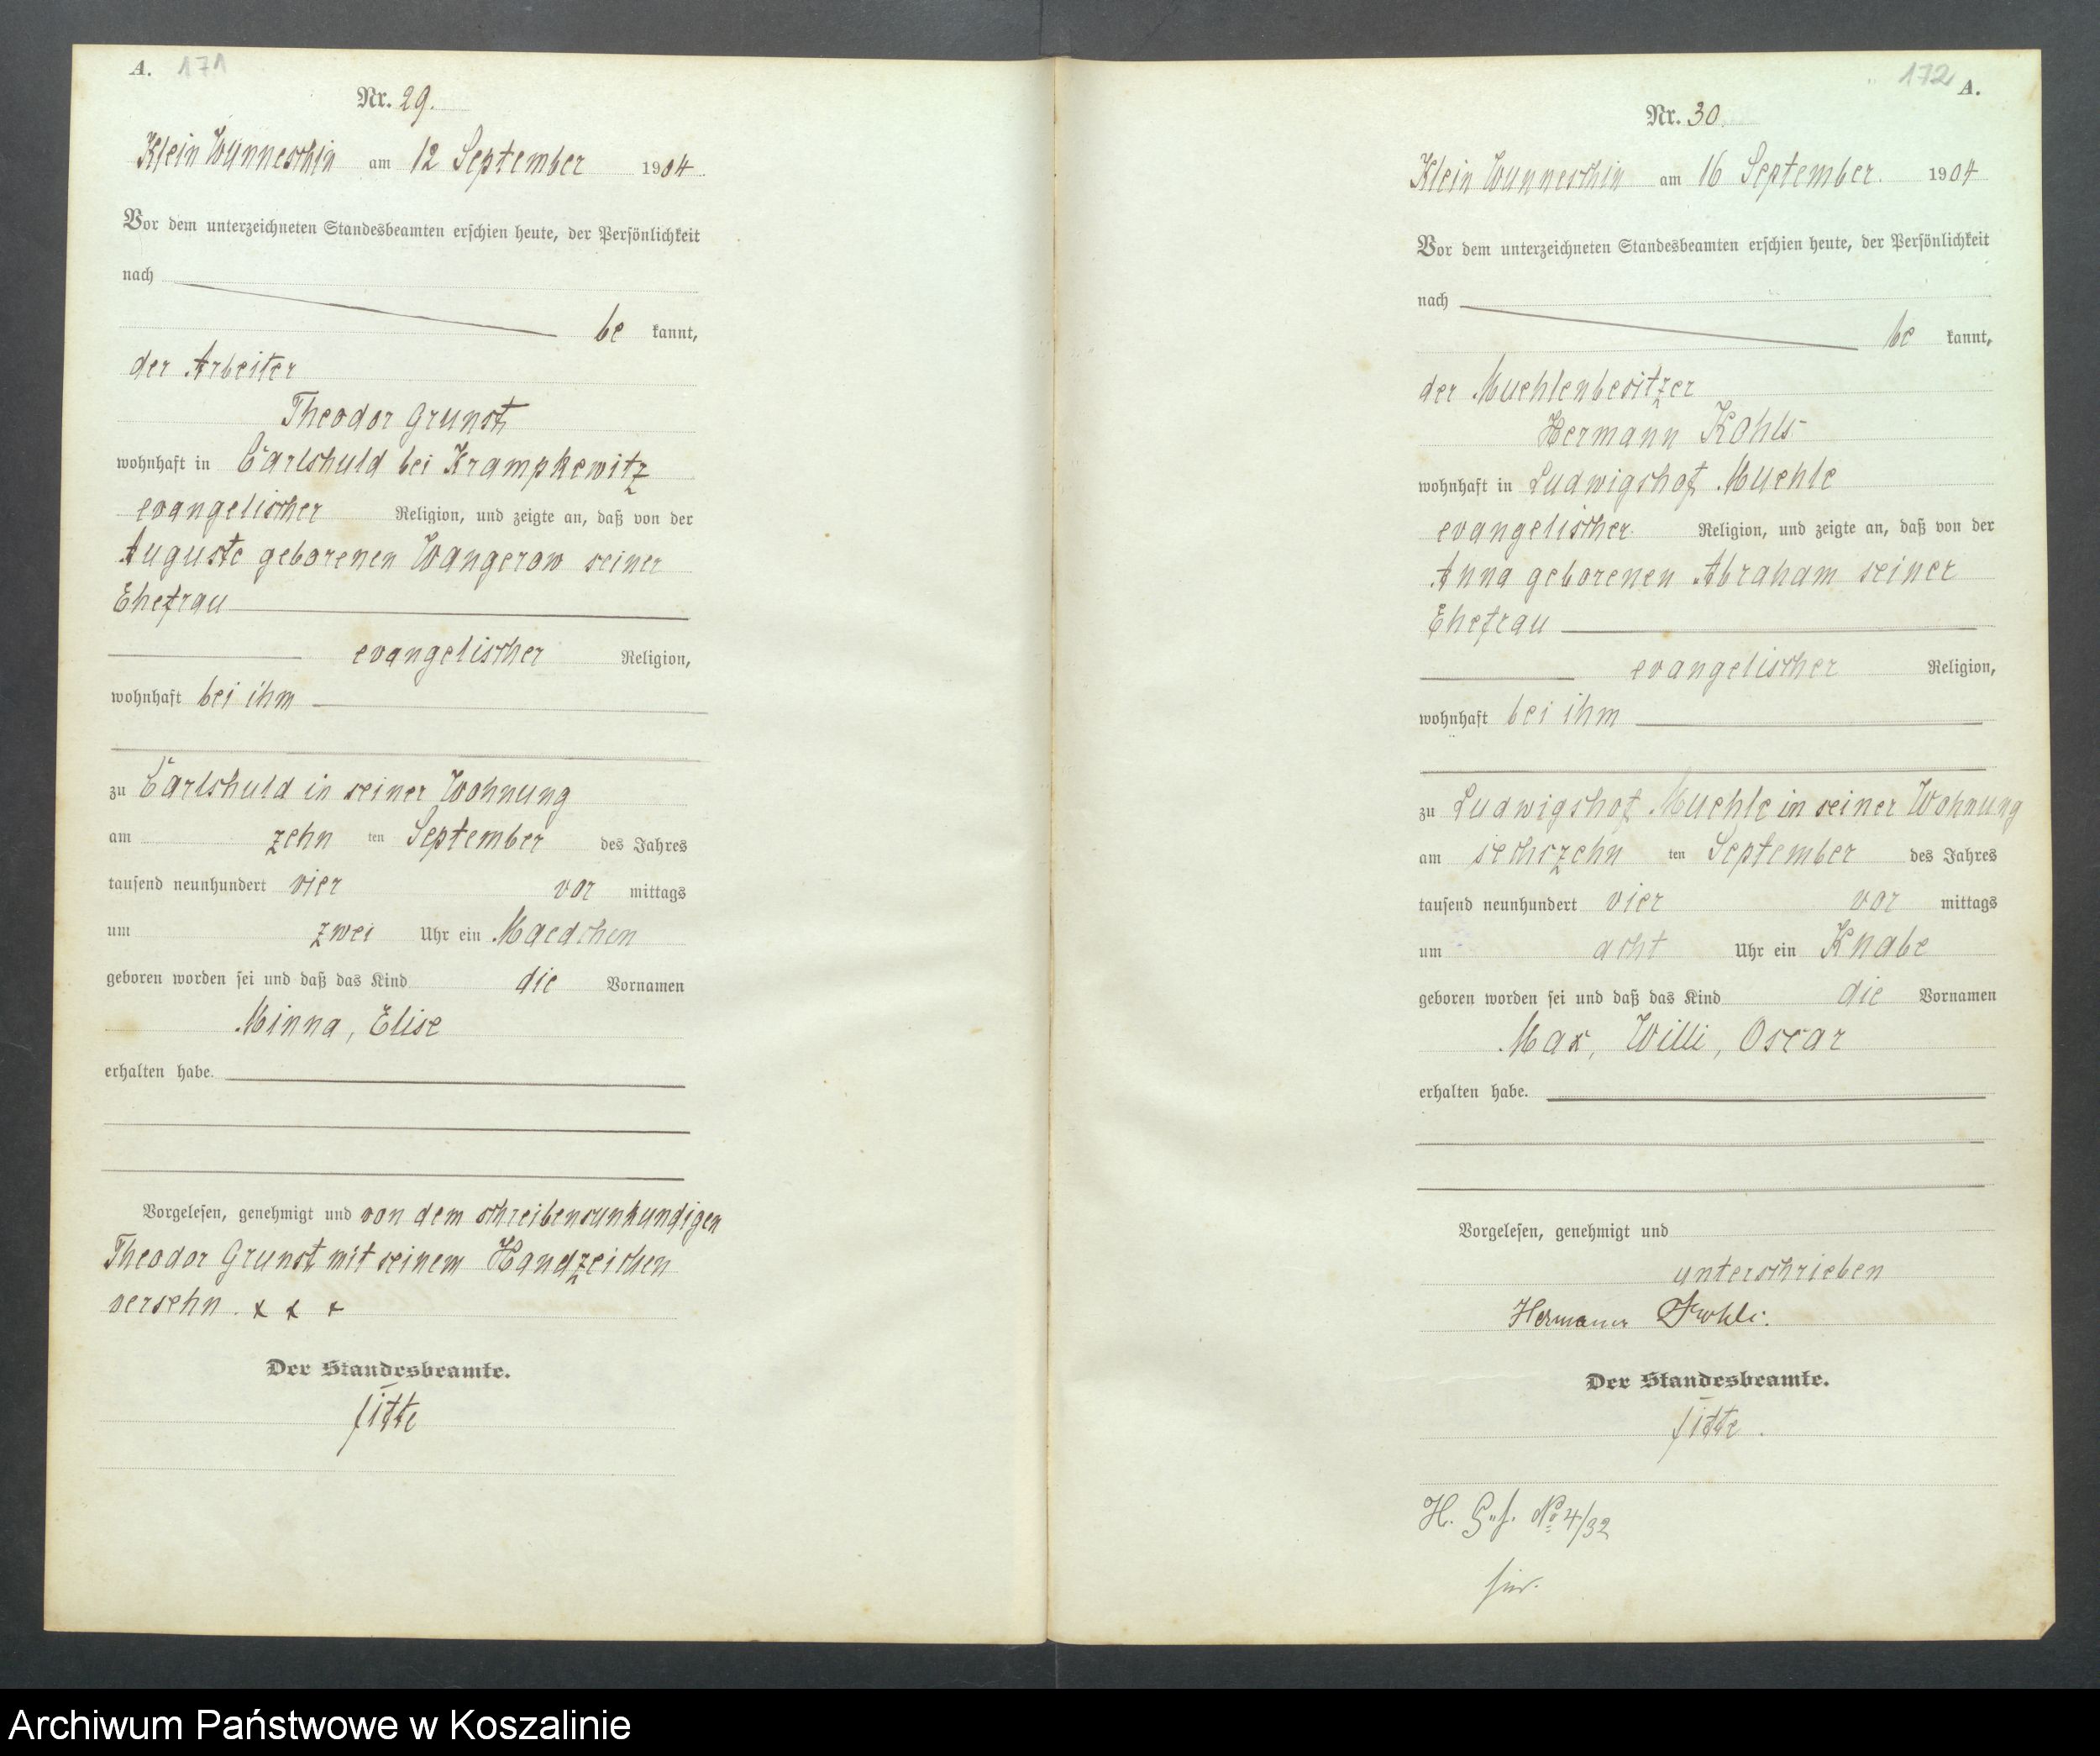 A. 171
Nr. 29.
Klein Wunneschin am 12 September 1904
Vor dem unterzeichneten Standesbeamten erschien heute, der Persönlichkeit
nach
be kannt,
der Arbeiter
Theodor Grunst
wohnhaft in Carlshuld bei Krampkewitz
evangelischer Religion, und zeigte an, daß von der
Auguste geborenen Wangerow seiner
Ehefrau
evangelischer Religion,
wohnhaft bei ihm
zu Carlshuld in seiner Wohnung
am zehn ten September des Jahres
tausend neunhundert vier vor mittags
um zwei Uhr ein Maedchen
geboren worden sei und daß das Kind die Vornamen
Minna, Elise
erhalten habe.
Vorgelesen, genehmigt und von dem schreibensunkundigen
Theodor Grunst mit seinem Handzeichen
versehn. x x x
Der Standesbeamte.
172 A.
Nr. 30.
Klein Wunneschin am 16 September. 1904
Vor dem unterzeichneten Standesbeamten erschien heute, der Persönlichkeit
nach
be kannt,
der Muehlenbesitzer
Hermann Kohls
wohnhaft in Ludwigshof Muehle
evangelischer Religion, und zeigte an, daß von der
Anna geborenen Abraham seiner
Ehefrau
evangelischer Religion,
wohnhaft bei ihm
zu Ludwigshof Muehle in seiner Wohnung
am sechszehn ten September des Jahres
tausend neunhundert vier vor mittags
um acht Uhr ein Knabe
geboren worden sei und daß das Kind die Vornamen
Max, Willi, Oscar
erhalten habe.
Vorgelesen, genehmigt und
unterschrieben
Hermann Kohls.
Der Standesbeamte.
H. No 4/32
Archiwum Państwowe w Koszalinie